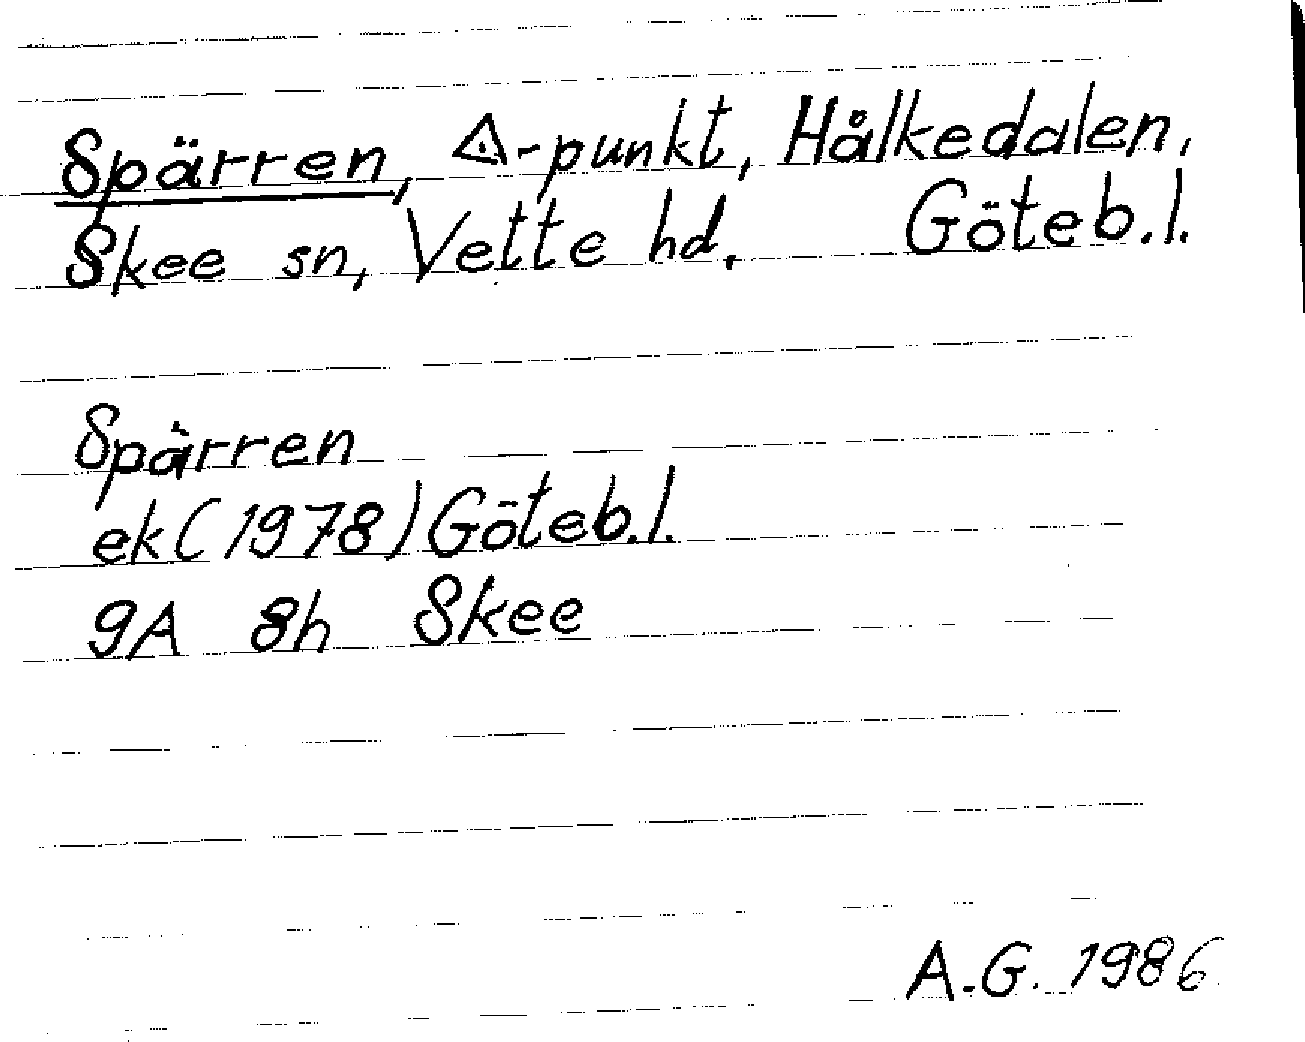 Spärren, ◬-punkt, Hålkedalen,
Skee sn, Vette hd. Göteb.l.
Spärren
ek (1978) Göteb.l.
9A 8h Skee
A.G. 1986